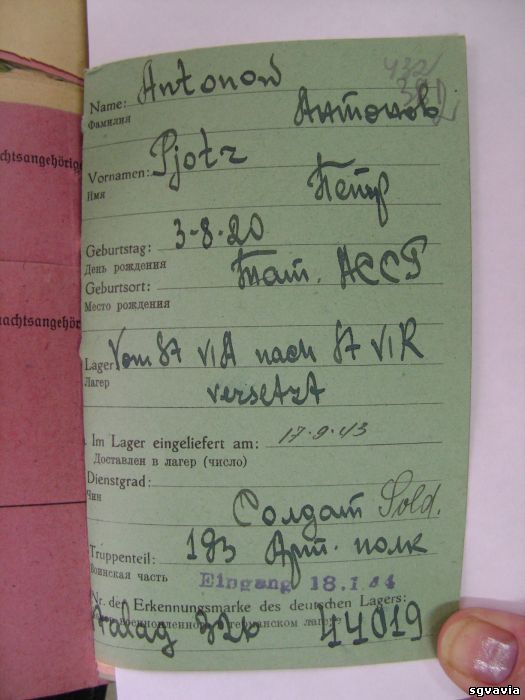 432
achtsangehörige
Name: Antonow
Фамилия
Антонов
Vornamen: Pjotr
Имя
Петр
Geburtstag: 3-8-20
День рождения
Geburtsort: Тат. АССР
Место рождения
Lager Vom St VIA nach St VIR
Лагер
versetzt
nachtsangehör
Im Lager eingeliefert am: 17.9.43
Доставлен в лагер (число)
Dienstgrad:
Чин
Солдат Sold.
Truppenteil: 183 Арт. полк
Воинская часть
Eingang 18.1.44
Nr. der Erkennungsmarke des deutschen Lagers:
военнопленного германском
Stalag 326 44019
sgvavia